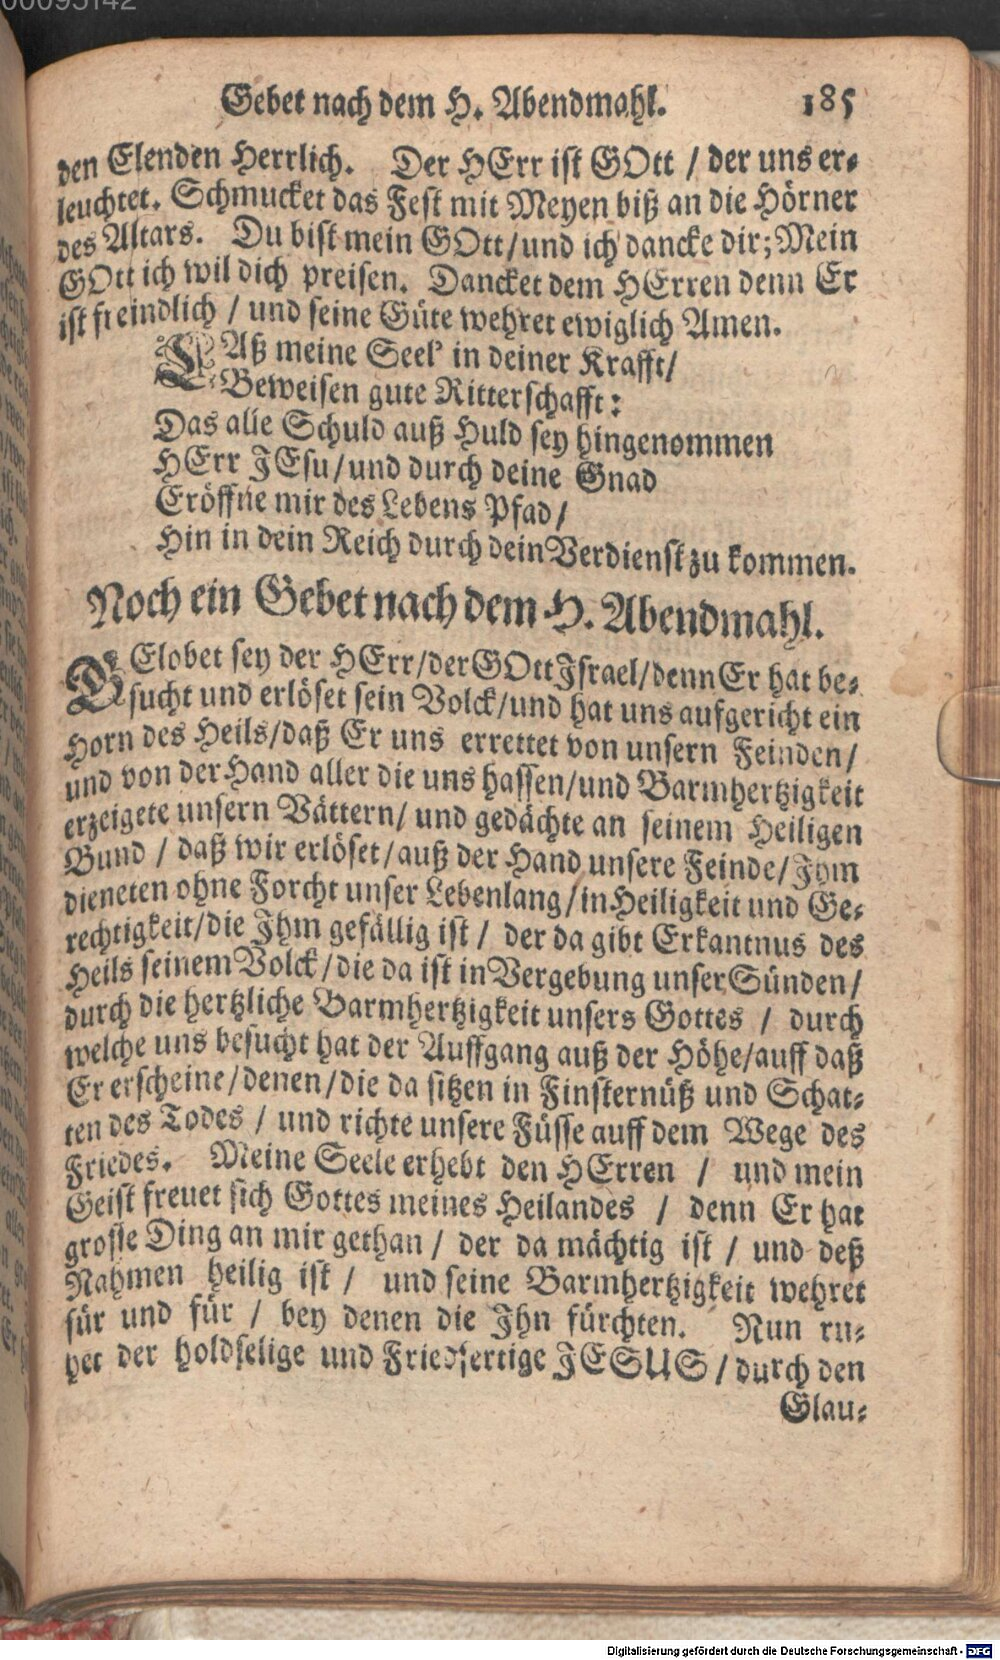 00095142
Gebet nach dem H. Abendmahl. 185
den Elenden Herrlich. Der HErr ist GOtt / der uns er-
leuchtet. Schmucket das Fest mit Meyen biß an die Hörner
des Altars. Du bist mein GOtt / und ich dancke dir; Mein
GOtt ich wil dich preisen. Dancket dem HErren denn Er
ist freindlich / und seine Güte wehret ewiglich Amen.
LAß meine Seel' in deiner Krafft /
Beweisen gute Ritterschafft:
Das alle Schuld auß Huld sey hingenommen
HErr JEsu / und durch deine Gnad
Eröffne mir des Lebens Pfad /
Hin in dein Reich durch dein Verdienst zu kommen.
Noch ein Gebet nach dem H. Abendmahl.
GElobet sey der HErr / der GOtt Israel / denn Er hat be-
sucht und erlöset sein Volck / und hat uns aufgericht ein
Horn des Heils / daß Er uns errettet von unsern Feinden /
und von der Hand aller die uns hassen / und Barmhertzigkeit
erzeigete unsern Vättern / und gedächte an seinem Heiligen
Bund / daß wir erlöset / auß der Hand unsere Feinde / Jhm
dieneten ohne Forcht unser Lebenlang / in Heiligkeit und Ge-
rechtigkeit / die Jhm gefällig ist / der da gibt Erkantnus des
Heils seinem Volck / die da ist in Vergebung unser Sünden /
durch die hertzliche Barmhertzigkeit unsers Gottes / durch
welche uns besucht hat der Auffgang auß der Höhe / auff daß
Er erscheine / denen / die da sitzen in Finsternüß und Schat-
ten des Todes / und richte unsere Füsse auff dem Wege des
Friedes. Meine Seele erhebt den HErren / und mein
Geist freuet sich Gottes meines Heilandes / denn Er hat
grosse Ding an mir gethan / der da mächtig ist / und deß
Nahmen heilig ist / und seine Barmhertzigkeit wehret
für und für / bey denen die Jhn fürchten. Nun ru-
het der holdselige und Friedfertige JESUS / durch den
Glau-
Digitalisierung gefördert durch die Deutsche Forschungsgemeinschaft - DFG